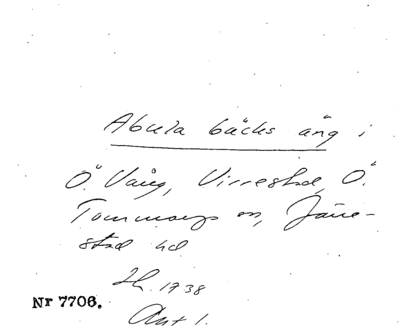 Abula bäcks äng i
Ö. Vång, Virrestad, Ö.
Tommarps sn, Järre-
stad hd
1738
Nr 7706.
Akt 1.